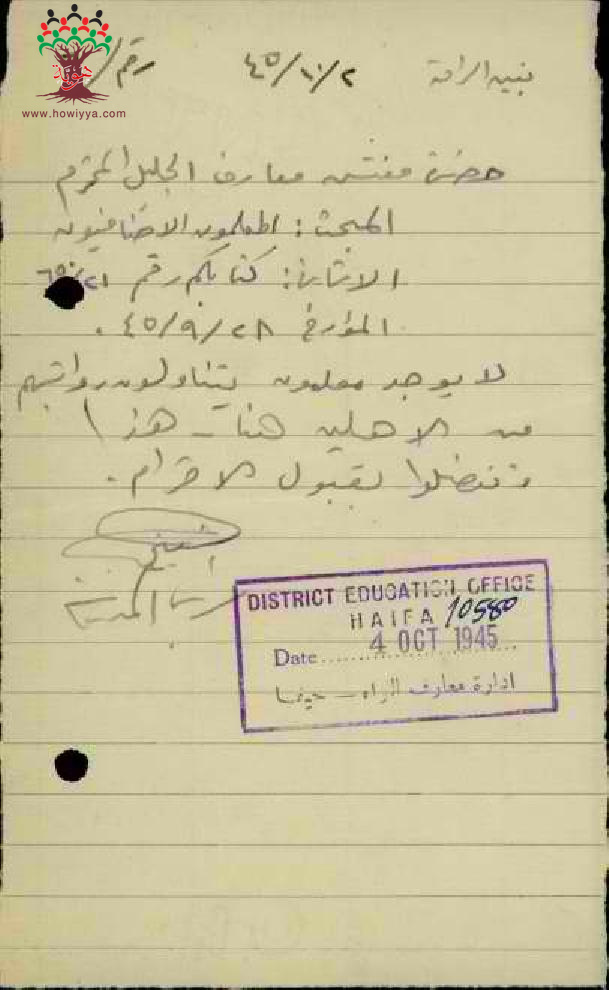 هوية
www.howiyya.com
بنين الرامة ٤٥/١٠/٢ رقم /
حضرة مفتش معارف الجليل المحترم
المبحث: المعلمون الاضافيون
الاشارة: كتابكم رقم
المؤرخ ٤٥/٩/٢٨.
لا يوجد معلمون يتناولون رواتبهم
من الاهلين هنا - هذا
وتفضلوا بقبول الاحترام.
المدرسة
DISTRICT EDUCATION OFFICE
HAIFA 10580
4 OCT 1945
Date
ادارة معارف اللواء - حيفا